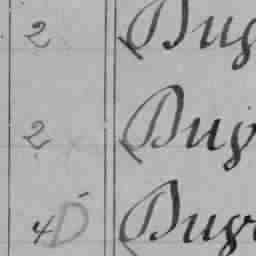 2 Dug
2 Dug
4 D Dug